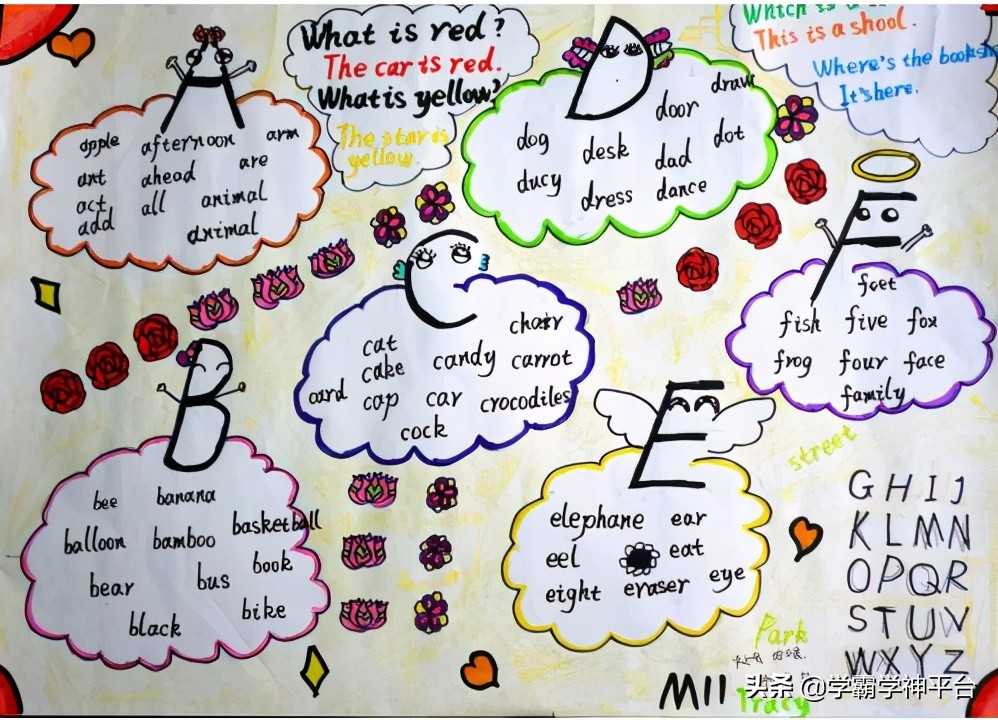 What is red?
The car is red.
What is yellow?
The star is
yellow.
This is a shool.
Where's the booksh
It's here.
A
apple afternoon arm
ant ahead are
act all animal
add animal
D
draw
door
dog desk dad dot
ducy dress dance
F
feet
fish five fox
frog four face
family
C
chair
cat candy carrot
cake
card cap car crocodiles
cock
B
bee banana
balloon bamboo basketball
bear bus book
black bike
E
elephane ear
eel eat
eight eraser eye
street
G H I J
K L M N
O P Q R
S T U V
W X Y Z
Park
M11 Tracy
头条 @学霸学神平台